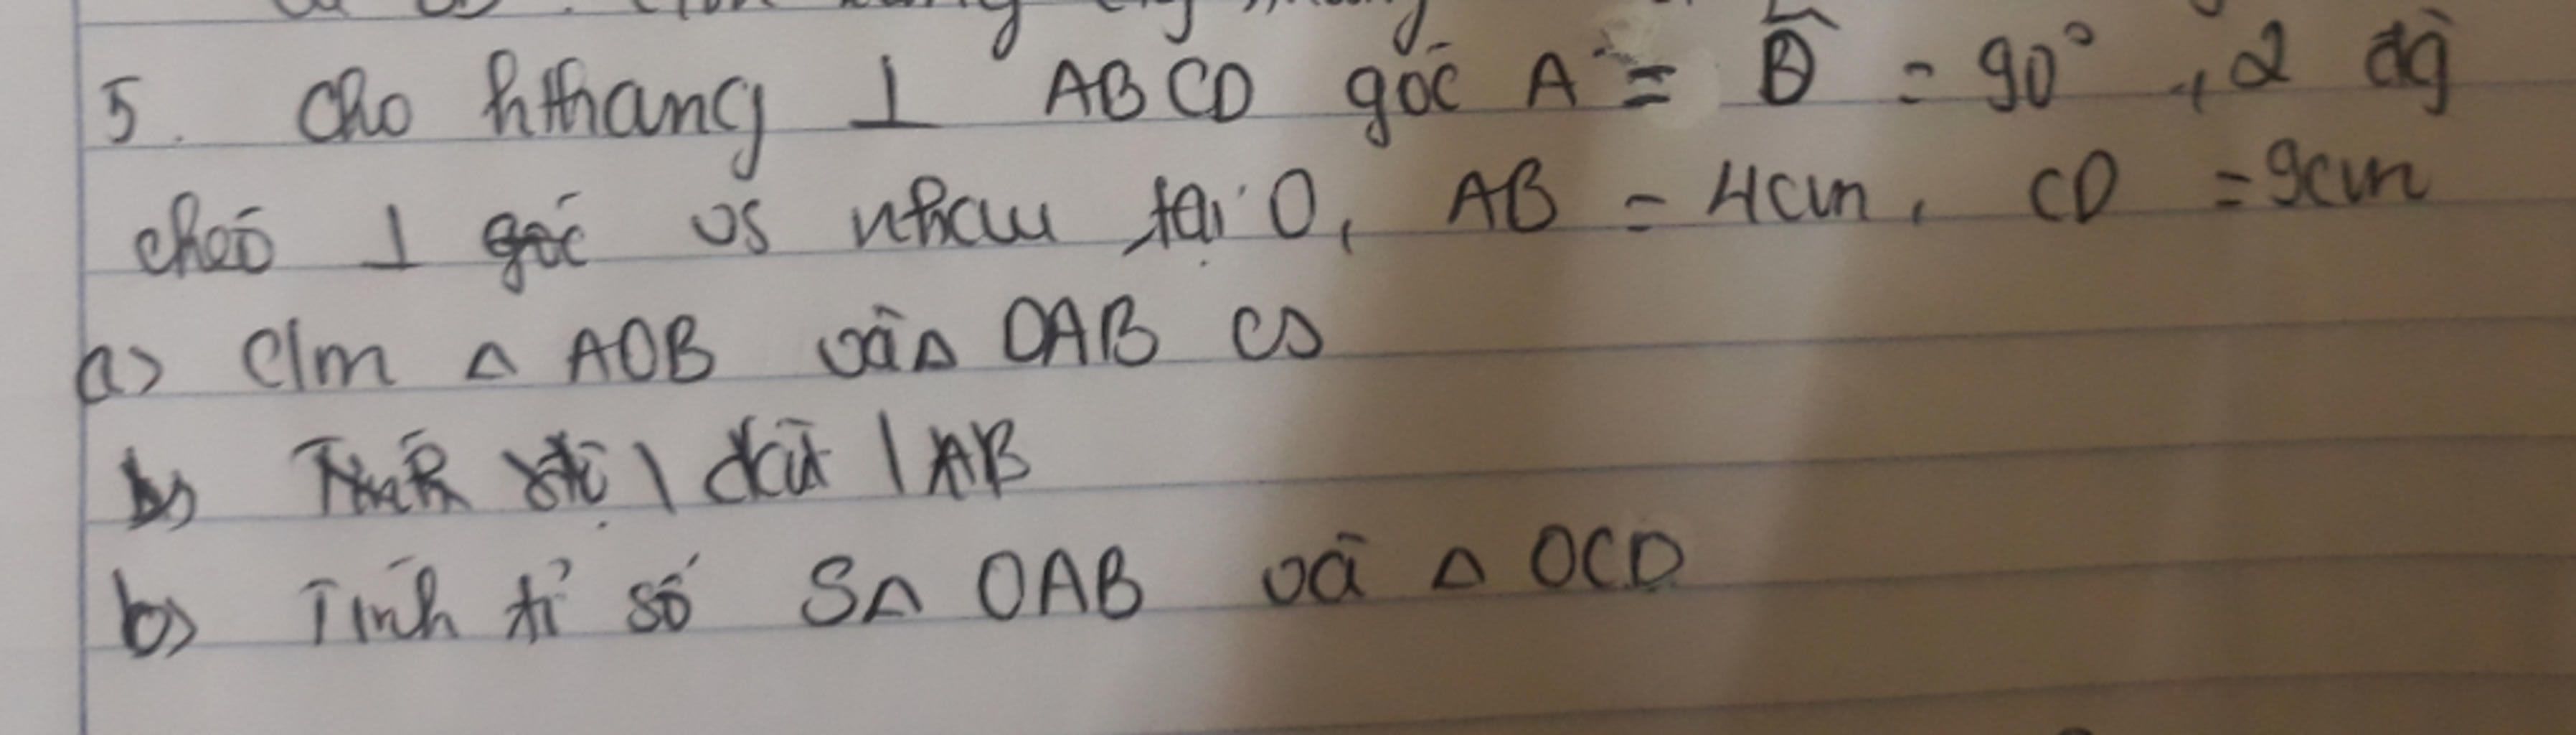 5. Cho hthang ⊥ ABCD góc A = B̂ = 90°, 2 đg
chéo ⊥ góc vs nhau tại O, AB = 4cm, CD = 9cm
a) C/m △ AOB và △ OAB CD
b) Tính
b) Tính tỉ số S△ OAB và △ OCD